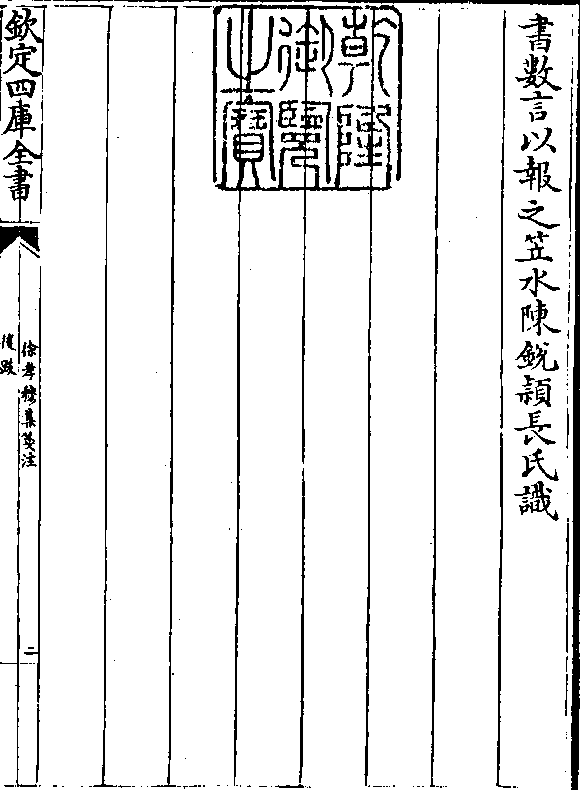 書數言以報之笠水陳銳頴長氏識
乾隆
御覽
之寶
欽定四庫全書
徐孝穆集箋注
後跋
二